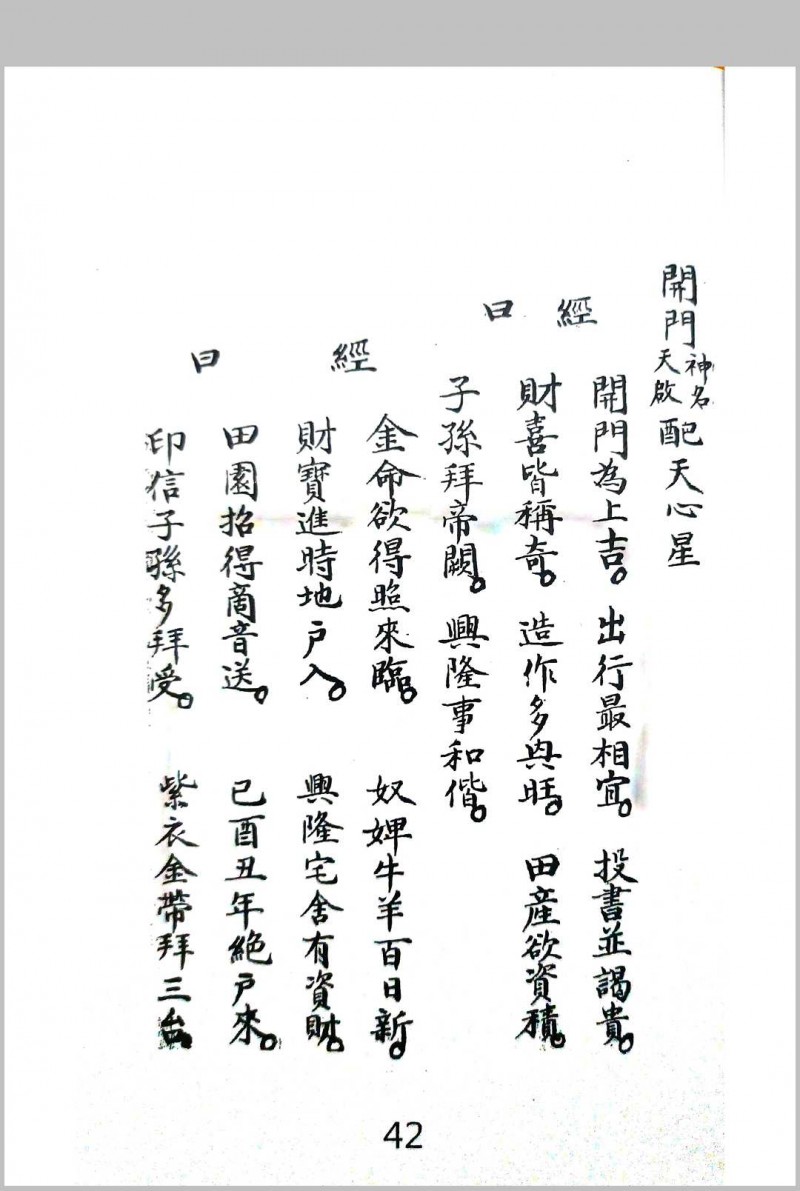 開門神名天啟配天心星
經曰
開門為上吉。出行最相宜。投書並謁貴。
財喜皆稱奇。造作多興旺。田產欲資積。
子孫拜帝闕。興隆事和偕。
經曰
金命欲得照來臨。奴婢牛羊百日新。
財寶進時地戶入。興隆宅舍有資財。
田園招得商音送。巳酉丑年絕戶來。
印信子孫多拜受。紫衣金帶拜三台。
42